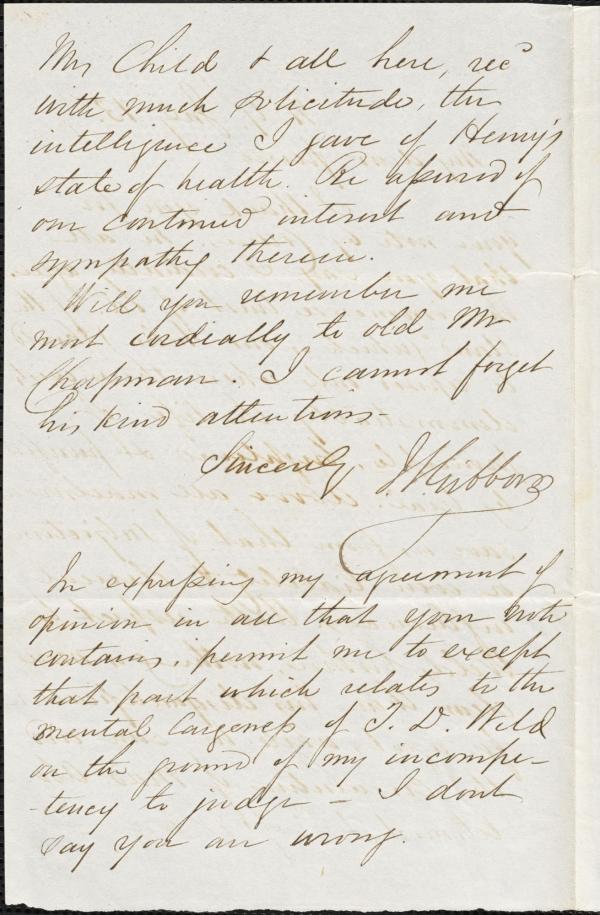 Mrs Child & all here, recd
with much solicitude, the
intelligence I gave of Henry's
state of health. Be assured of
our continued interest and
sympathy therein.
Will you remember me
most cordially to old Mr
Chapman. I cannot forget
his kind attentions -
Sincerely J S Gibbons
In expressing my agreement of
opinion in all that your note
contains, permit me to except
that part which relates to the
mental largeness of T. D. Weld
on the ground of my incompe-
-tency to judge - I dont
say you are wrong.